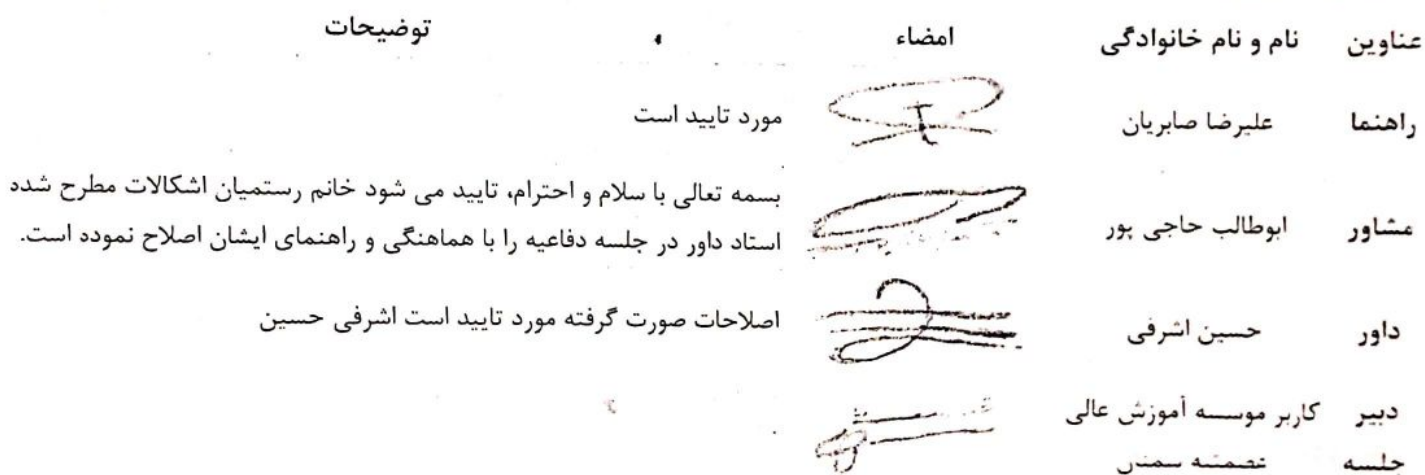 عناوین نام و نام خانوادگی امضاء توضیحات
راهنما علیرضا صابریان مورد تایید است
مشاور ابوطالب حاجی پور بسمه تعالی با سلام و احترام، تایید می شود خانم رستمیان اشکالات مطرح شده
استاد داور در جلسه دفاعیه را با هماهنگی و راهنمای ایشان اصلاح نموده است.
داور حسین اشرفی اصلاحات صورت گرفته مورد تایید است اشرفی حسین
دبیر کاربر موسسه آموزش عالی
جلسه سمنان